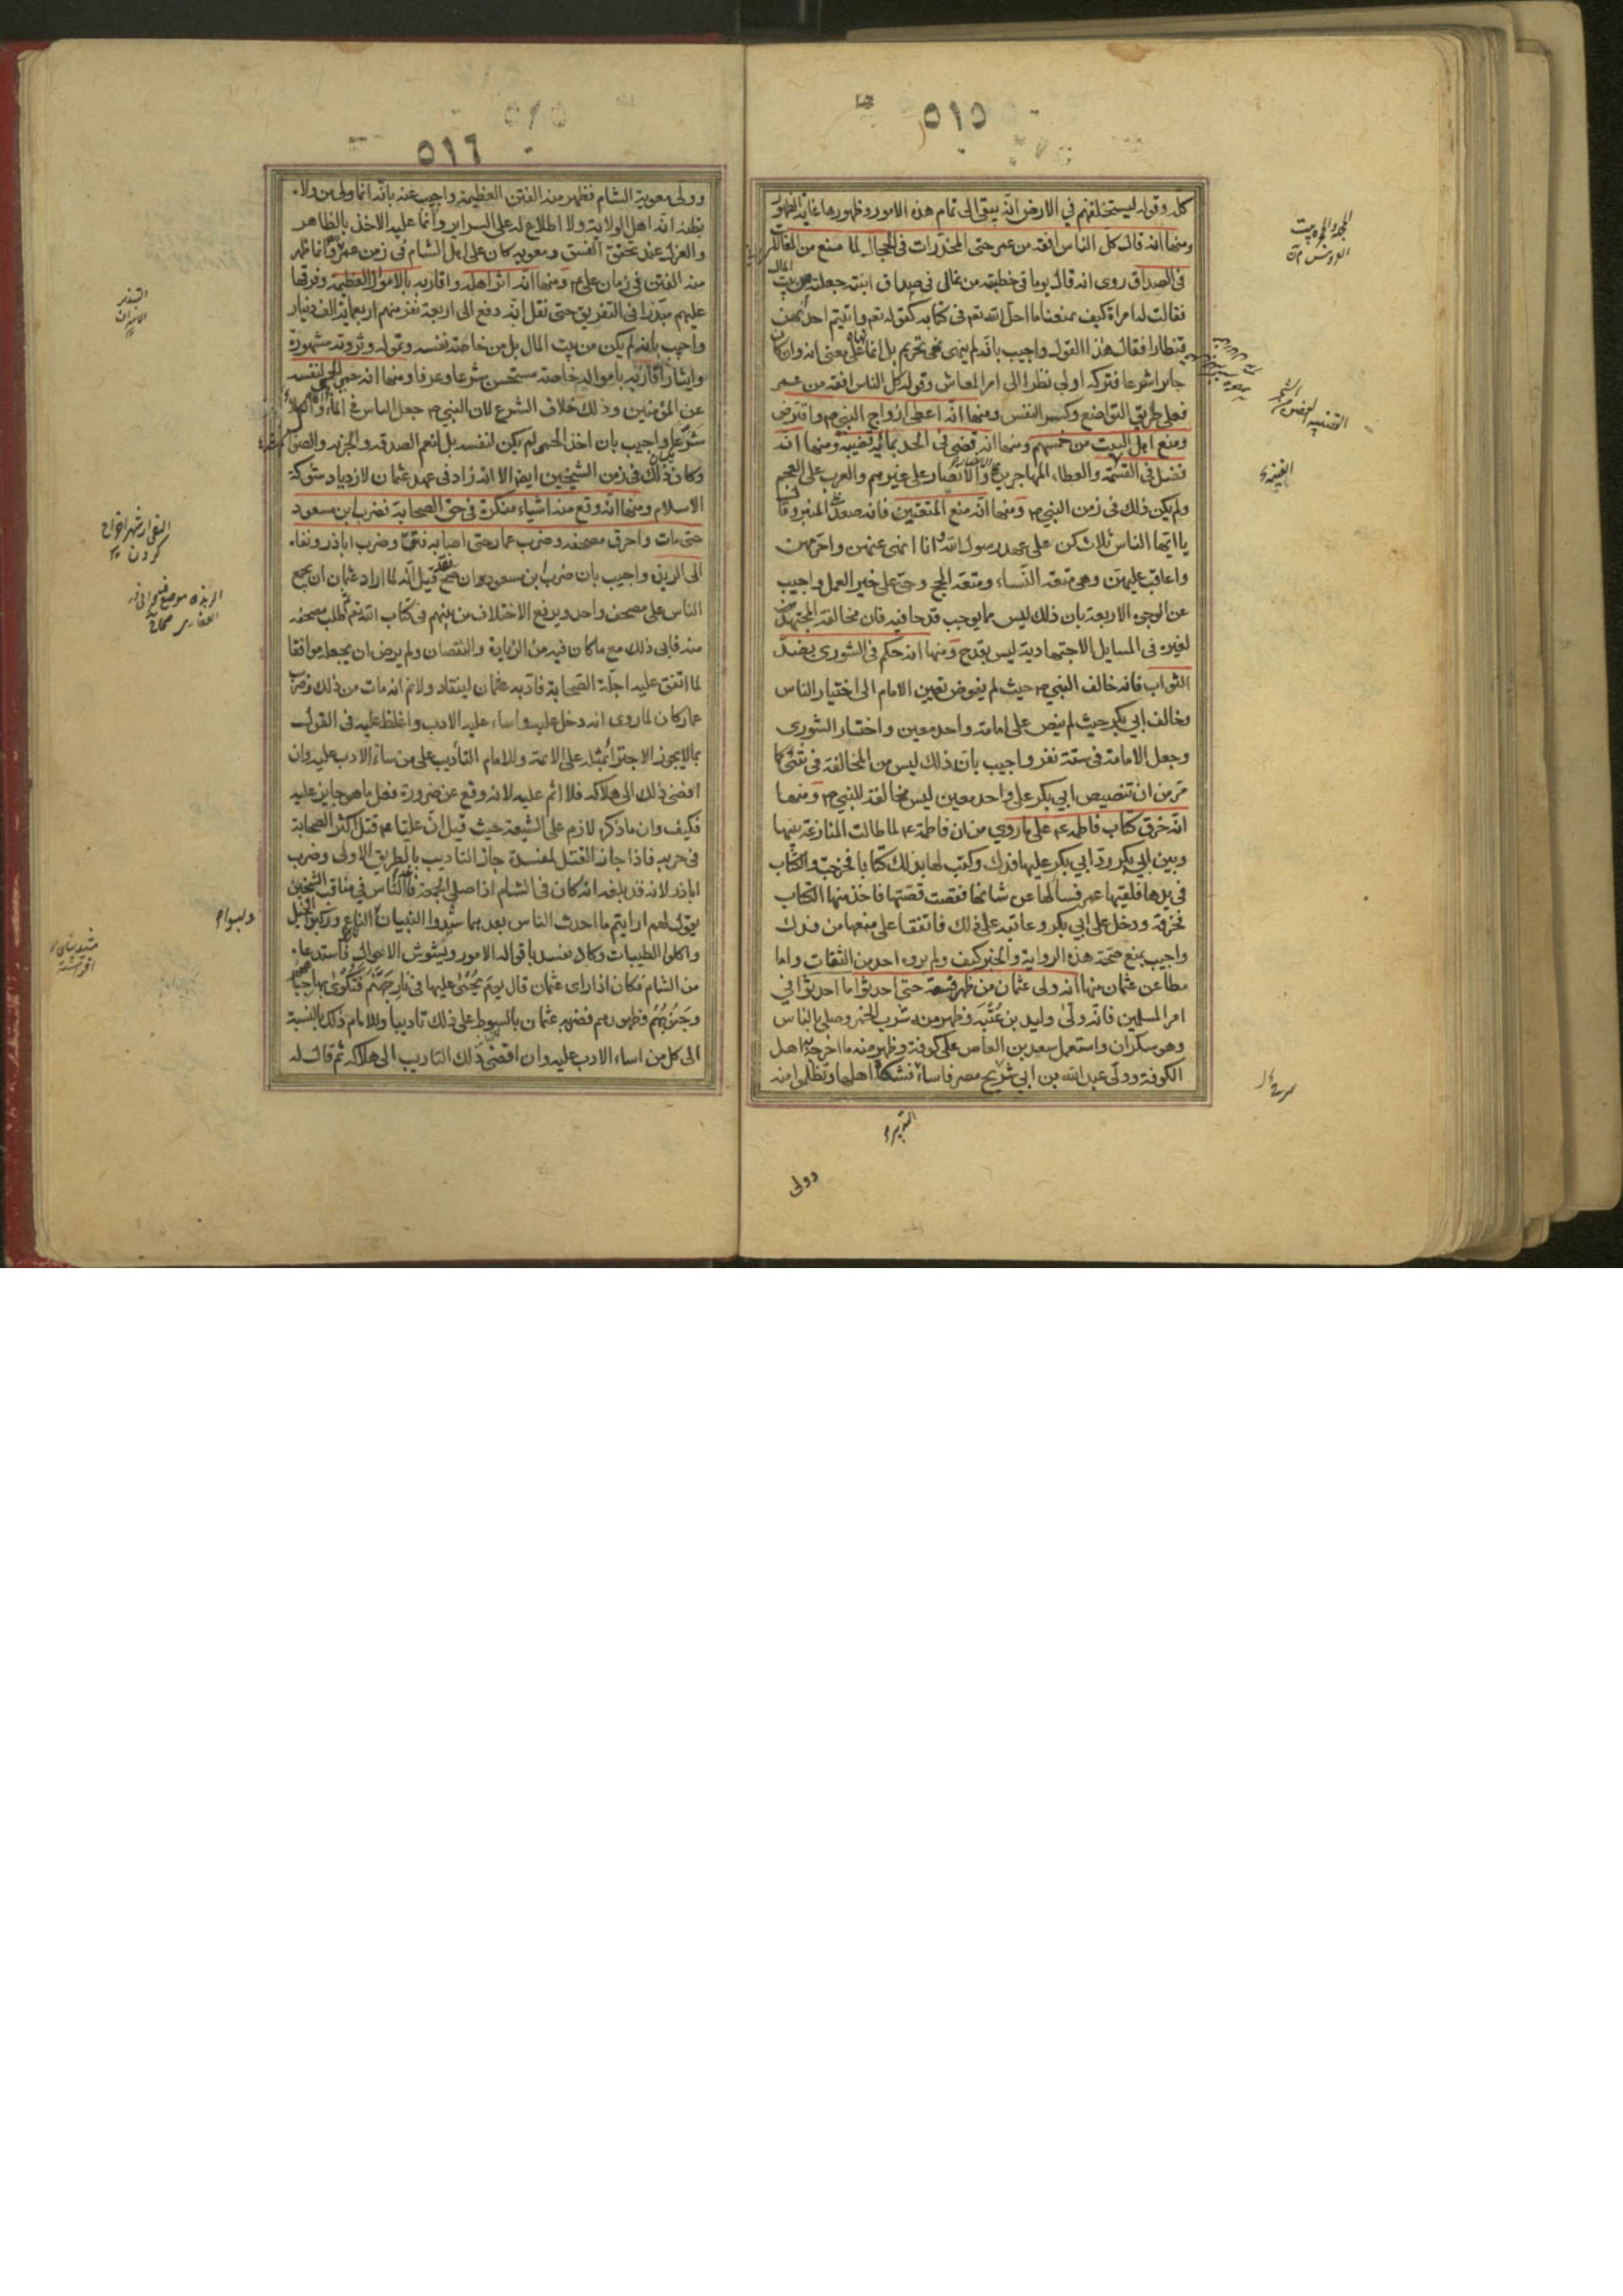 ٥١٥
كله وقوله ليستخلفنهم في الارض انه يبقى الى تمام هذه الامور وظهورها غاية الظهور
ومنها انه قال كل الناس افقه من عمر حتى المخدرات في الحجال لما منع من المغالات
في الصداق روى انه قال يوما في خطبته من غالى في صداق ابنته جعلته في بيت المال
فقالت له امراة كيف تمنعنا ما احل الله تع في كتابه كقوله تع واتيتم احديهن
قنطارا فقال هذا القول واجيب بانه لم ينهى نهى تحريم بل انما نهاه على معنى انه وان كان
جائزا شرعا فتركه اولى نظرا الى امر المعاش وقوله كل الناس افقه من عمر
فعلى طريق التواضع وكسر النفس ومنها انه اعطى ازواج النبي ص واقترض
ومنع اهل البيت من خمسهم ومنها انه قضى في الحد بمائة قضيبة ومنها انه
فضل في القسمة والعطاء المهاجرين والانصار على غيرهم والعرب على العجم
ولم يكن ذلك في زمن النبي ص ومنها انه منع المتعتين فانه صعد المنبر وقال
يا ايها الناس ثلاث كن على عهد رسول الله انا انهى عنهن واحرمهن
واعاقب عليهن وهي متعة النساء ومتعة الحج وحي على خير العمل واجيب
عن الوجوه الاربعة بان ذلك ليس مما يوجب قدحا فيه فان مخالفة المجتهد
لغيره في المسايل الاجتهادية ليس بقدح ومنها انه حكم في الشورى بضد
الثواب فانه خالف النبي ص حيث لم يفوض تعيين الامام الى اختيار الناس
وخالف ابي بكر حيث لم ينص على امامة واحد معين واختار الشورى
وجعل الامامة في ستة نفر واجيب بان ذلك ليس من المخالفة في شئ كما
مر من ان تنصيص ابي بكر على واحد معين ليس مخالفة للنبي ص ومنها
انه خرق كتاب فاطمة ع على ما روي من ان فاطمة ع لما طالت المنازعة بينها
وبين ابي بكر رد ابي بكر عليها فدك وكتب لها بذلك كتابا فخرجت والكتاب
في يدها فلقيها عمر فسالها عن شانها فقصت قصتها فاخذ منها الكتاب
فخرقه ودخل على ابي بكر وعاتبه على ذلك فاتفقا على منعها من فدك
واجيب بمنع صحة هذه الرواية والخبر كيف ولم يروه احد من الثقات واما
مطاعن عثمان منها انه ولى عثمان من ظهر فسقه حتى احدثوا ما احدثوا في
امر المسلمين فانه ولى وليد بن عتبة وظهر منه شرب الخمر وصلى بالناس
وهو سكران واستعمل سعيد بن العاص على كوفة وظهر منه ما اخرجه اهل
الكوفة وولى عبد الله بن ابي شريح مصر فاساء فشكا اهلها وتظلموا منه
وولى
٥١٦
وولى معوية الشام فظهر منه الفتن العظيمة واجيب عنه بانه انما ولى من ولاه
بظنه انه اهل الولاية ولا اطلاع له على السراير وانما عليه الاخذ بالظاهر
والعزل عند تحقق الفسق ومعوية كان على اهل الشام في زمن عمر وانما ظهر
منه الفتن في زمان علي ع ومنها انه اثر اهله واقاربه بالاموال العظيمة وفرقها
عليهم مبذرا في التفريق حتى نقل انه دفع الى اربعة نفر منهم اربعماية الف دينار
واجيب بانه لم يكن من بيت المال بل من خاصة نفسه وتموله وثروته مشهورة
وايثار اقاربه باموال خاصته مستحسن شرعا وعرفا ومنها انه حمى الحمى لنفسه
عن المؤمنين وذلك خلاف الشرع لان النبي ص جعل الناس في الماء والكلاء
شرعا واجيب بان اخذ الحمى لم يكن لنفسه بل لنعم الصدقة والجزية والضوال
وكان ذلك في زمن الشيخين ايضا الا انه زاد في عهد عثمان لازدياد شوكة
الاسلام ومنها انه وقع منه اشياء منكرة في حق الصحابة فضرب ابن مسعود
حتى مات واحرق مصحفه وضرب عمار حتى اصابه فتق وضرب اباذر ونفاه
الى الربذة واجيب بان ضرب ابن مسعود وان صح فقد قيل انه لما اراد عثمان ان يجمع
الناس على مصحف واحد ويرفع الاختلاف من بينهم في كتاب الله تع طلب مصحفه
منه فابى ذلك مع ما كان فيه من الزيادة والنقصان ولم يرض ان يجعله موافقا
لما اتفق عليه اجلة الصحابة فادبه عثمان لينقاد ولانم انه مات من ذلك وضرب
عمار كان لما روى انه دخل عليه واساء عليه الادب واغلظ عليه في القول
بما لا يجوز الاجتراء بمثله على الائمة وللامام التأديب على من اساء الادب عليه وان
افضى ذلك الى هلاكه فلا اثم عليه لانه وقع عن ضرورة فعل ما هو جايز عليه
فكيف وان ما ذكره لازم على الشيعة حيث قيل ان عليا ع قتل اكثر الصحابة
في حربه فاذا جاز القتل لمفسدة جاز التاديب بالطريق الاولى وضرب
اباذر لانه قد بلغه انه كان في الشام اذا صلى الجمعة واخذ الناس في مناقب الشيخين
يقول لهم ارايتم ما احدث الناس بعدهما شيدوا البنيان ولبسوا الناعم وركبوا الخيل
واكلوا الطيبات وكاد يفسد باقواله الامور ويشوش الاحوال فاستدعاه
من الشام فكان اذا راى عثمان قال يوم يحمى عليها في نار جهنم فتكوى بها جباههم
وجنوبهم وظهورهم فضربه عثمان بالسوط على ذلك تاديبا وللامام ذلك بالنسبة
الى كل من اساء الادب عليه وان افضى ذلك التاديب الى هلاكه ثم قال له